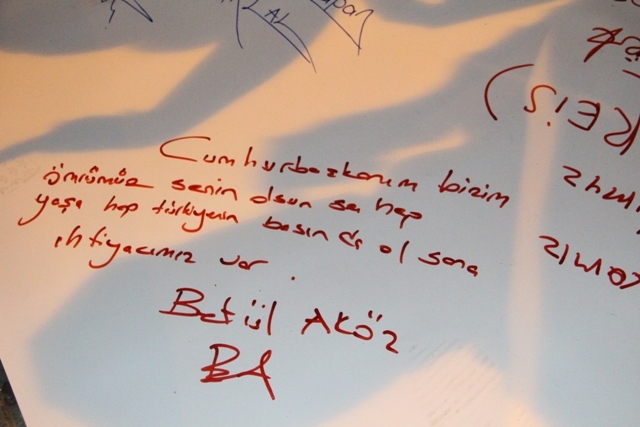 AL
REİS)
Cumhurbaşkanım bizim
ömrümüz senin olsun sen hep
yaşa hep türkiyenin basında ol sana
ihtiyacımız var.
Betül AKÖZ
BA